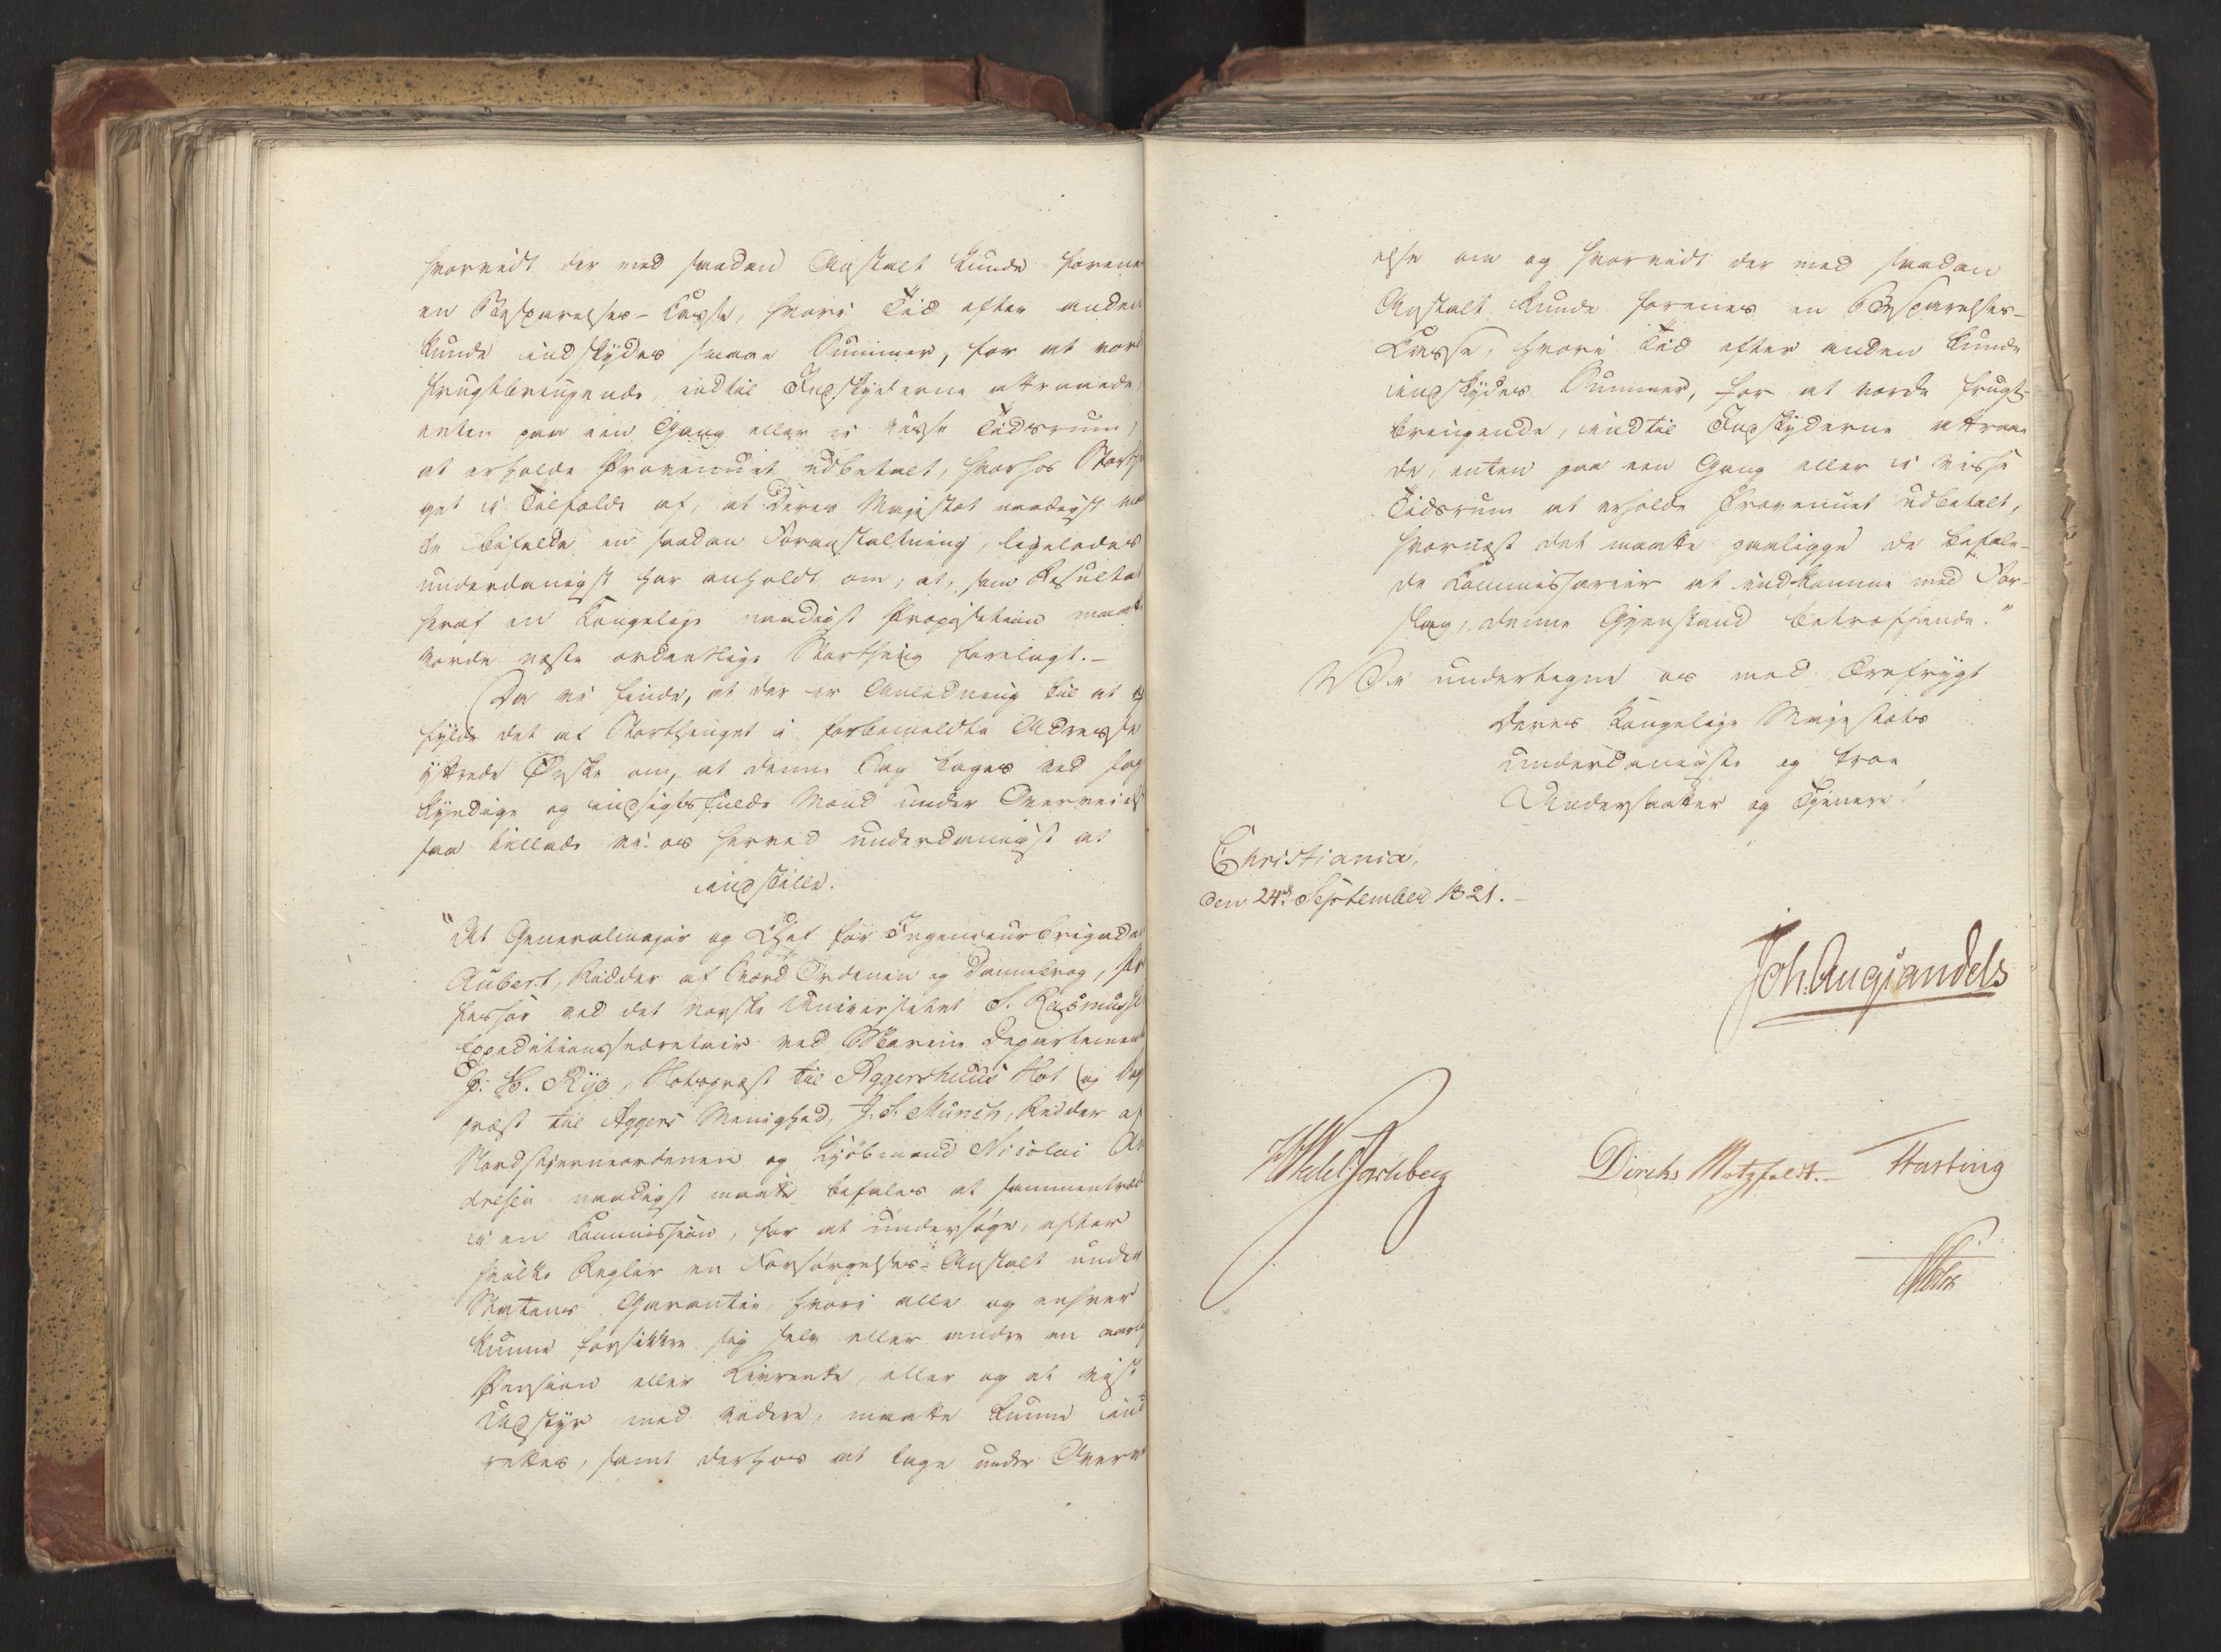 hvorvidt der med saadan Anstalt kunde forene
en Besparelses-Casse, hvori Tid efter anden
kunde indskydes smaae Summer, for at vord
frugtbringende, indtil Indskyderne attraaede,
enten paa een Gang eller i visse Tidsrum,
at erholde Provenuet udbetalt, hvorhos Storth
get i Tilfælde af, at Deres Majestæt naadigst maat
te bifalde en saadan Foranstaltning, ligeledes
underdanigst har anholdt om, at, som Resultat
heraf en Kongelig naadigst Proposition maatt
vorde næste ordentlige Storthing forelagt.-
Da vi finde, at der er Anledning til at op
fylde det af Storthinget i forbemeldte Adresse
yttrede Ønske om, at denne Sag tages ved sag
kyndige og indsigtsfulde Mænd under Overveiels
saa tillade vi os herved underdanigst at
indstille:
"At Generalmajor og Chef for Ingenieurbrigaden
Aubert, Ridder af Sværd Ordenen og Dannebrog, Pr
fessor ved det norske Universitet S. Rasmusse
Expeditionssecretair ved Marine Departement
P. H. Rye, Slotspræst til Aggershuus Slot og Sog
præst til Aggers Menighed, J. S. Munch, Ridder af
Nordstjerneordenen og Kjøbmand Nicolai An
dresen naadigst maatte befales at sammentræd
i en Commission, for at undersøge, efter
hvilke Regler en Forsørgelses-Anstalt under
Statens Garantie, hvori alle og enhver
kunne forsikkre sig selv eller andre en aarlig
Pension eller Livrente, eller og at vist
Udstyr med videre, maatte kunne ind
rettes, samt derhos at tage under Overvei
else om og hvorvidt der med saadan
Anstalt kunde forenes en Besparelses-
Casse, hvori Tid efter anden kunde
indskydes Summer, for at vorde frugt-
bringende, indtil Indskyderne attraae
de, enten paa een Gang eller i visse
Tidsrum at erholde Provenuet udbetalt,
hvornæst det maatte paaligge de befale-
de Commissarier at indkomme med For-
slag, denne Gjenstand betræffende."
Vi undertegne os med Ærefrygt
Deres Kongelige Majestæts
underdanigste og troe
Undersaatter og Tjenere!
Christiania,
den 24de September 1821.-
Joh. Aug. Sandels
Diriks Motzfeldt.- Hasting